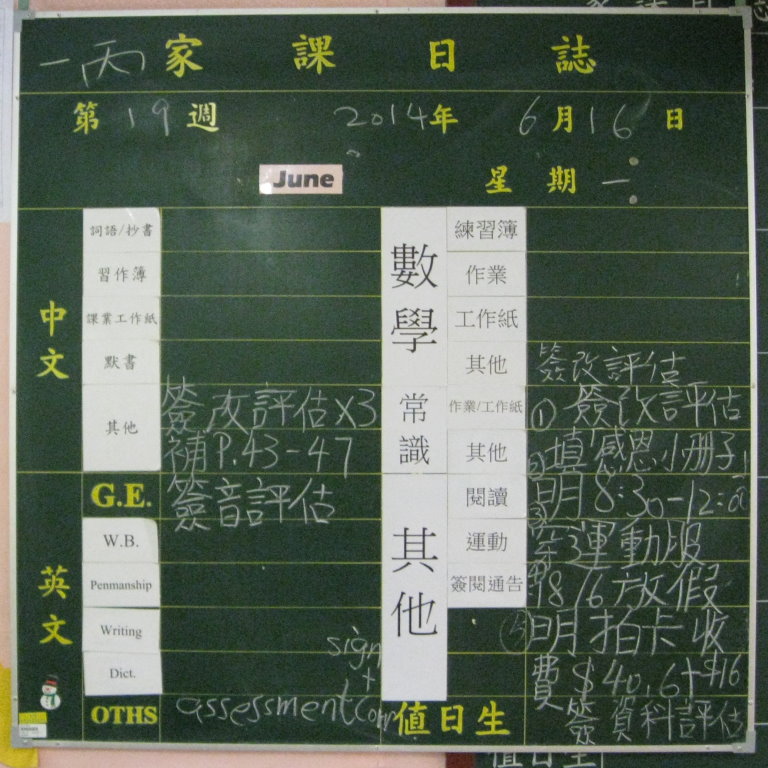 一丙 家課日誌
第19週 2014年6月16日
June 星期一
中文
詞語/抄書
習作簿
課業工作紙
默書
其他
簽改評估x3
補P.43-47
英文
G.E.
簽音評估
W.B.
Penmanship
Writing
Dict.
sign
+
OTHS
assessment
數學
練習簿
作業
工作紙
其他
簽改評估
常識
作業/工作紙
① 簽改評估
其他
②填感恩小冊子
其他
閱讀
③明8:30-12:00
運動
穿運動服
簽閱通告
④18/6放假
⑤明拍卡收
費$40.6+$16
值日生
簽資料評估